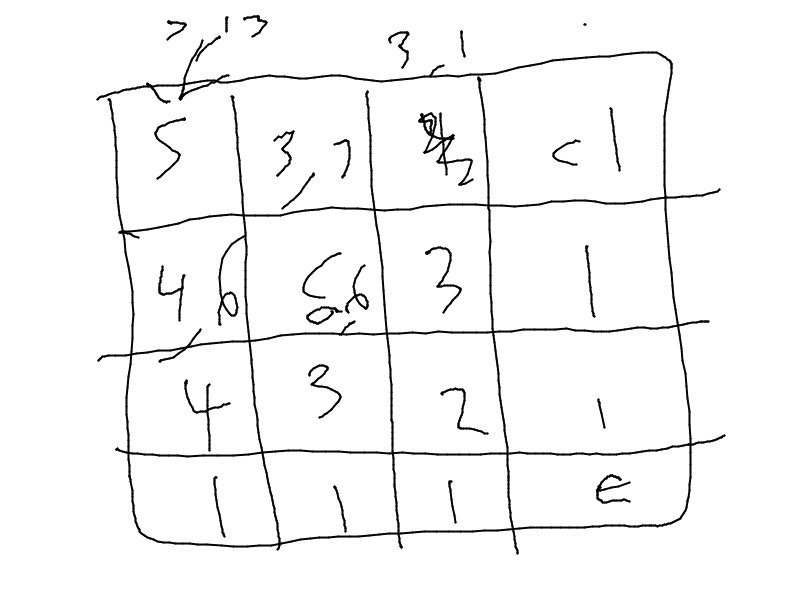 7,13 3,1
5 3,7 2 <1
4,6 5,6 3 1
4 3 2 1
1 1 1 E